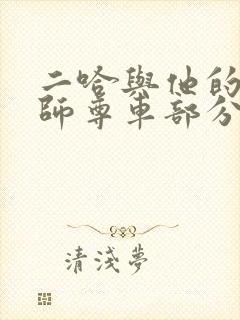 二哈與他的
師尊車部分
清淺夢